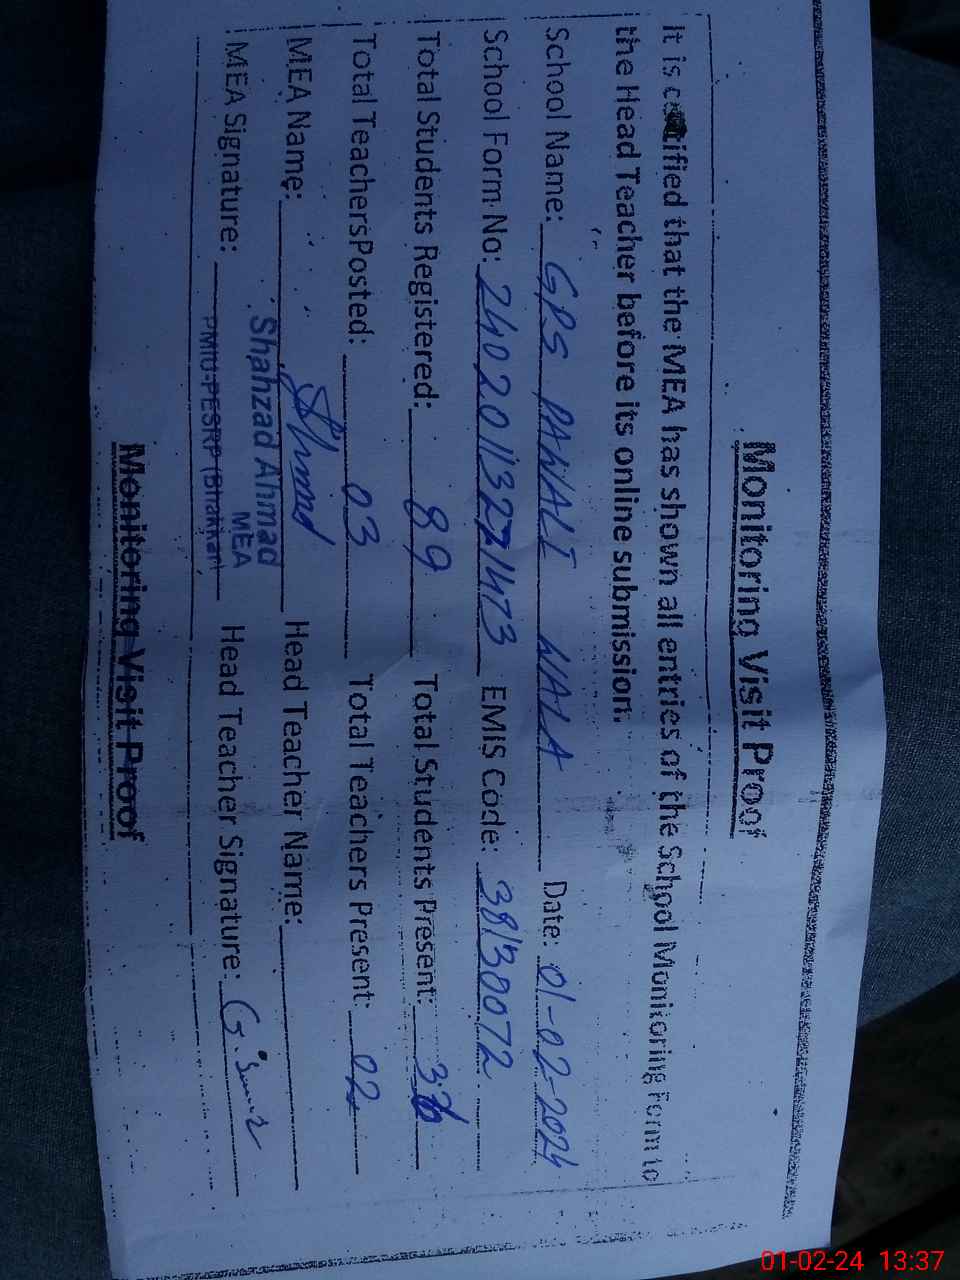 Monitoring Visit Proof
It is certified that the MEA has shown all entries of the School Monitoring Form to
the Head Teacher before its online submission.
School Name: GPS PANALI WALA Date: 01-02-2024
School Form No: 240201132271473 EMIS Code: 38130072
Total Students Registered: 89 Total Students Present: 36
Total TeachersPosted: 03 Total Teachers Present: 02
MEA Name: Ahmad Head Teacher Name:
Shahzad Ahmad
MEA
MEA Signature: PMIU-PESRP (Bhakkar) Head Teacher Signature:
Monitoring Visit Proof
01-02-24 13:37